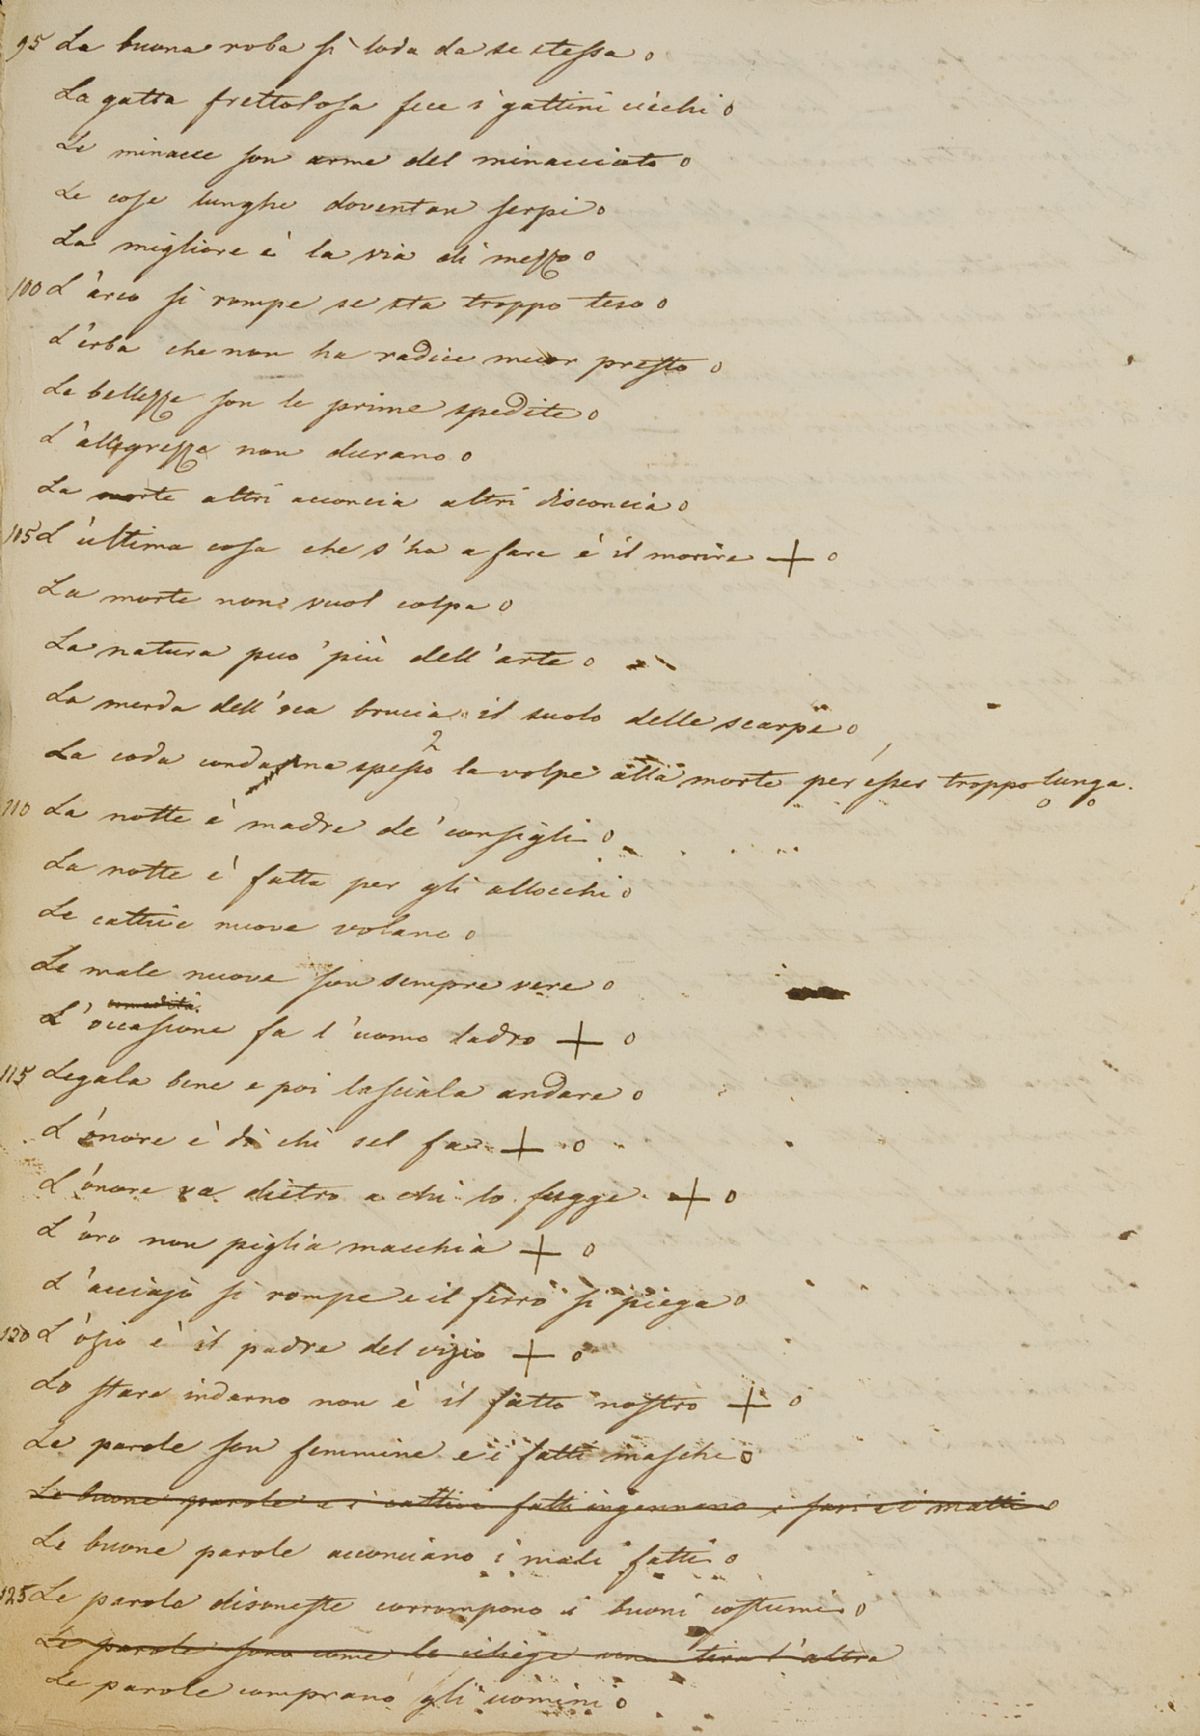 95 La buona roba si loda da se stessa o
La gatta frettolosa fece i gattini ciechi o
Le minacce son arme del minacciato o
Le cose lunghe doventan serpi o
La migliore è la via di mezzo o
100 L'arco si rompe se sta troppo teso o
L'erba che non ha radice muor presto o
Le bellezze son le prime spedite o
L'allegrezze non durano o
La morte altri acconcia altri disconcia o
105 L'ultima cosa che s'ha a fare è il morire + o
La morte non vuol colpa o
La natura puo più dell'arte o
La merda dell'oca brucia il suolo delle scarpe o
2
La coda condanna spesso la volpe alla morte per esser troppo lunga. o o
110 La notte è madre de' consigli o
La notte è fatta per gli allocchi o
Le cattive nuove volano o
Le male nuove son sempre vere o
comodità
L'occasione fa l'uomo ladro + o
115 Legala bene e poi lasciala andare o
L'onore è di chi sel fa + o
L'onore va dietro a chi lo fugge + o
L'oro non piglia macchia + o
L'acciajo si rompe e il ferro si piega o
120 L'ozio è il padre del vizio + o
Lo stare indarno non è il fatto nostro + o
Le parole son femmine e i fatti maschi o
Le buone parole e i cattivi fatti ingannano i savi e i matti o
Le buone parole acconciano i mali fatti o
125 Le parole disoneste corrompono i buoni costumi o
Le parole sono come le ciliege una tira l'altra
Le parole comprano gli uomini o